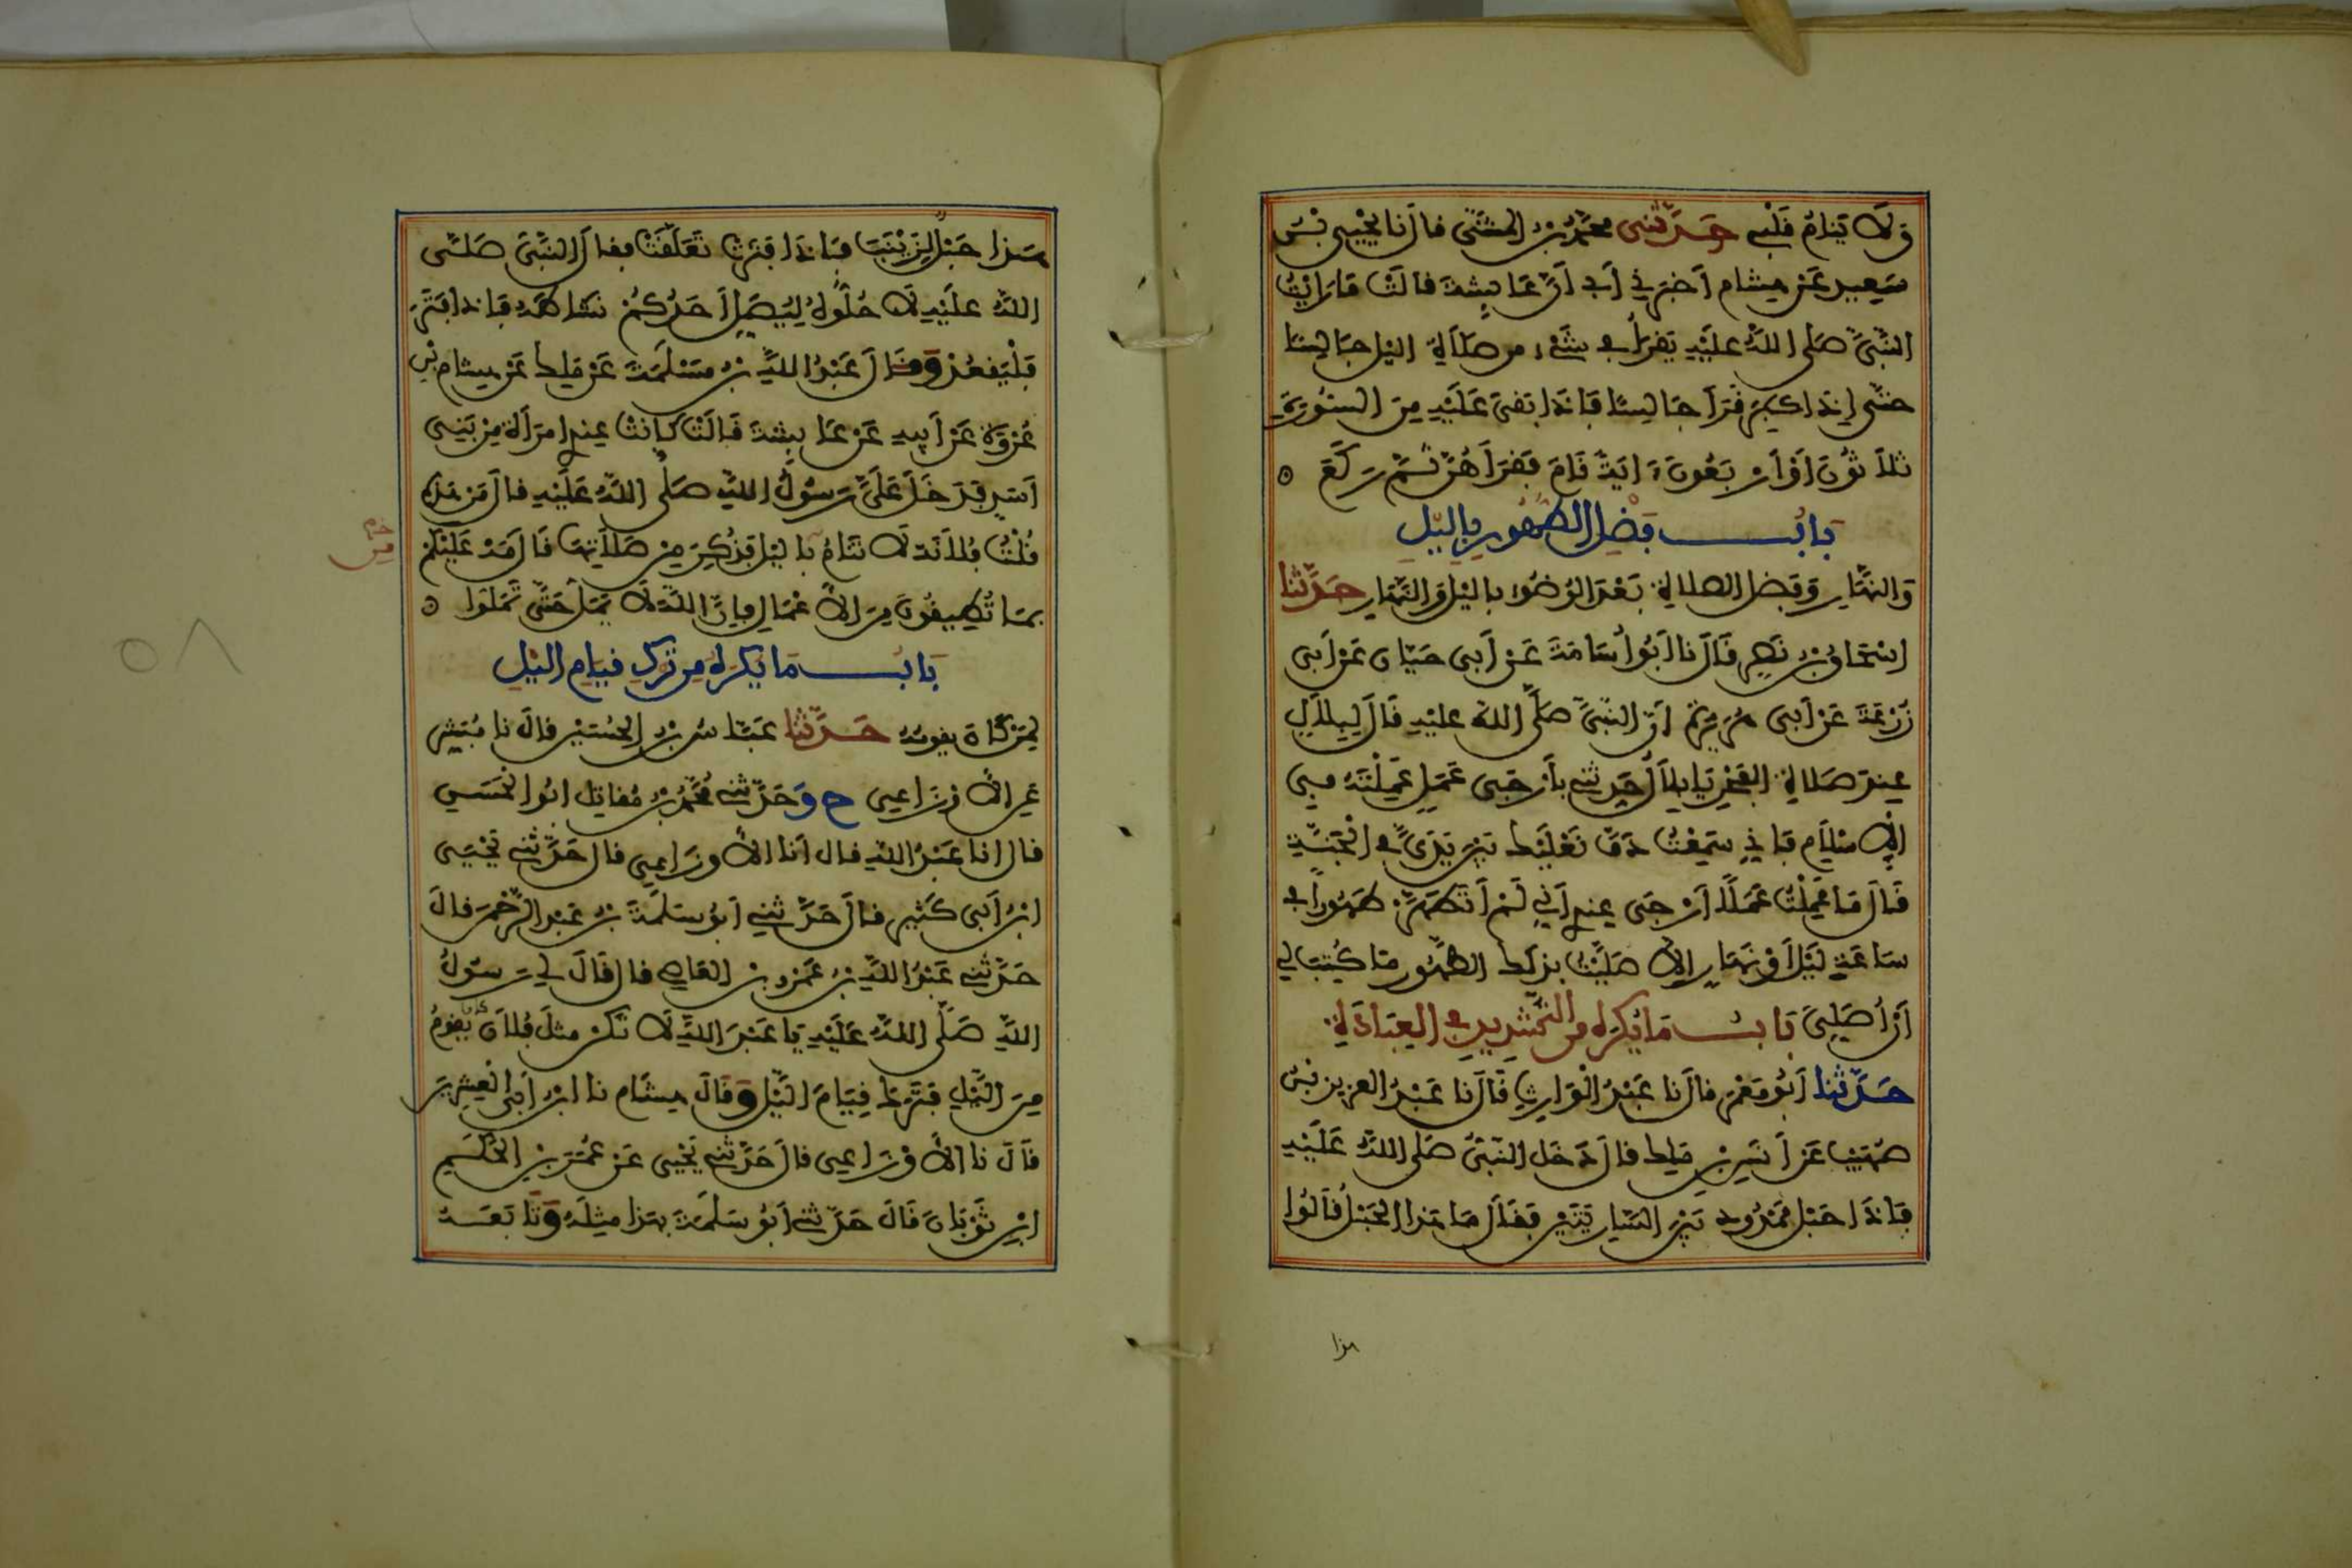 وَلَا يَنَامُ قَلْبِي حَدَّثَنِي مُحَمَّدُ بْنُ الْمُثَنَّى قَالَ نَا يَحْيَى بْنُ
سَعِيدٍ عَنْ هِشَامٍ أَخْبَرَنِي أَبِي أَنَّ عَائِشَةَ قَالَتْ مَا رَأَيْتُ
النَّبِيَّ صَلَّى اللَّهُ عَلَيْهِ يَقْرَأُ فِي شَيْءٍ مِن صَلَاةِ اليْلِ جَالِسًا
حَتَّى إِذَا كَبِرَ قَرَأَ جَالِسًا فَإِذَا بَقِيَ عَلَيْهِ مِنَ السُّورَةِ
ثَلَاثُونَ أَوْ أَرْبَعُونَ ءَايَةً قَامَ فَقَرَأَهُنَّ ثُمَّ رَكَعَ ه
بَابُ فَضْلِ الطُّهُورِ بِاليْلِ
وَالنَّهَارِ وَفَضْلِ الصلَاةِ بَعْدَ الْوُضُوءِ بِاليْلِ وَالنَّهَارِ حَدَّثَنَا
إِسْحَاقُ بْنُ نَصْرٍ قَالَ نَا أَبُو أُسَامَةَ عَنْ أَبِي حَيَّانَ عَنْ أَبِي
زُرْعَةَ عَنْ أَبِي هُرَيْرَةَ أَنَّ النَّبِيَّ صَلَّى اللهُ عَلَيْهِ قَالَ لِبِلَالٍ
عِنْدَ صَلَاةِ الْفَجْرِ يَا بِلَالُ حَدِّثْنِي بِأَرْجَى عَمَلٍ عَمِلْتَهُ فِي
الْإِسْلَامِ فَإِنِّي سَمِعْتُ دَفَّ نَعْلَيْكَ بَيْنَ يَدَيَّ فِي الْجَنَّةِ
قَالَ مَا عَمِلْتُ عَمَلًا أَرْجَى عِنْدِي أَنِّي لَمْ أَتَطَهَّرْ طَهُورًا فِي
سَاعَةِ لَيْلٍ أَوْ نَهَارٍ إِلَّا صَلَّيْتُ بِذَلِكَ الطُّهُورِ مَا كُتِبَ لِي
أَنْ أُصَلِّيَ بَابُ مَا يُكْرَهُ مِن التَّشْدِيدِ فِي الْعِبَادَةِ
حَدَّثَنَا أَبُو مَعْمَرٍ قَالَ نَا عَبْدُ الْوَارِثِ قَالَ نَا عَبْدُ الْعَزِيزِ بْنُ
صُهَيْبٍ عَنْ أَنَسِ بْنِ مَلِكٍ قَالَ دَخَلَ النَّبِيُّ صَلَّى اللَّهُ عَلَيْهِ
فَإِذَا حَبْلٌ مَمْدُودٌ بَيْنَ السَّارِيَتَيْنِ فَقَالَ مَا هَذَا الْحَبْلُ قَالُوا
هذا
هَذَا حَبْلٌ لِزَيْنَبَ فَإِذَا فَتَرَتْ تَعَلَّقَتْ فقَالَ النَّبِيُّ صَلَّى
اللَّهُ عَلَيْهِ لَا حُلُّوهُ لِيُصَلِّ أَحَدُكُمْ نَشَاطَهُ فَإِذَا فَتَرَ
فَلْيَقْعُدْ وَقَالَ عَبْدُ اللَّهِ بْنُ مَسْلَمَةَ عَنْ مَلِكٍ عَنْ هِشَامِ بْنِ
عُرْوَةَ عَنْ أَبِيهِ عَنْ عَائِشَةَ قَالَتْ كَانَتْ عِنْدِي امْرَأَةٌ مِنْ بَنِي
أَسَدٍ فَدَخَلَ عَلَيَّ رَسُولُ اللَّهِ صَلَّى اللَّهُ عَلَيْهِ قَالَ مَنْ هَذِهِ
قُلْتُ فُلَانَةُ لَا تَنَامُ بِاليْلِ فَذُكِرَ مِنْ صَلَاتِهَا قَالَ مَهْ عَلَيْكُمْ
بِمَا تُطِيقُونَ مِنَ الْأَعْمَالِ فَإِنَّ اللَّهَ لَا يَمَلُّ حَتَّى تَمَلُّوا ه
بَابُ مَا يُكْرَهُ مِن تَرْكِ قِيَامِ اليْلِ
لِمَنْ كَانَ يَقُومُهُ حَدَّثَنَا عَبَّاسُ بْنُ الْحُسَيْنِ قَالَ نَا مُبَشِّرٌ
عَنِ الْأَوْزَاعِيِّ ح وَحَدَّثَنِي مُحَمَّدُ بْنُ مُقَاتِلٍ أَبُو الْحَسَنِ
قَالَ أنَا عَبْدُ اللَّهِ قَالَ أَنَا الْأَوْزَاعِيُّ قَالَ حَدَّثَنِي يَحْيَى
ابْنُ أَبِي كَثِيرٍ قَالَ حَدَّثَنِي أَبُو سَلَمَةَ بْنُ عَبْدِ الرَّحْمَنِ قَالَ
حَدَّثَنِي عَبْدُ اللَّهِ بْنُ عَمْرِو بْنِ الْعَاصِ قَالَ قَالَ لِي رَسُولُ
اللَّهِ صَلَّى اللَّهُ عَلَيْهِ يَا عَبْدَ اللَّهِ لَا تَكُنْ مِثْلَ فُلَانٍ كَانَ يَقُومُ
مِنَ اللَّيْلِ فَتَرَكَ قِيَامَ اللَّيْلِ وَقَالَ هِشَامٌ نَا ابْنُ أَبِي الْعِشْرِينَ
قَالَ نَا الْأَوْزَاعِيُّ قَالَ حَدَّثَنِي يَحْيَى عَنْ عُمَرَ بْنِ الْحَكَمِ
ابْنِ ثَوْبَانَ قَالَ حَدَّثَنِي أَبُو سَلَمَةَ بِهَذَا مِثْلَهُ وَتَابَعَهُ
٥٨